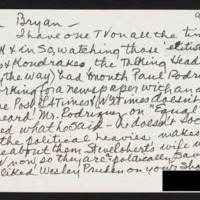 Bryan —
I have one TV on all the tim
N & in So, watching those 'elitis
& Kondrakes, the Talking Head
the way) Last month Paul Rodri
rking for a newspaper with an
e Pool (LATimes & NYTimes doesn't
eard Mr. Rodriguez on "Equal
ed what he said – he doesn't so
the political heavies makes
e about them. Steve Roberts wife
now so they are "politically Sav
liked Wesley Pruden on your Show